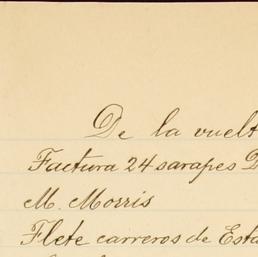 De la vuelt
Factura 24 sarapes D
M. Morris
Flete carreros de Esta